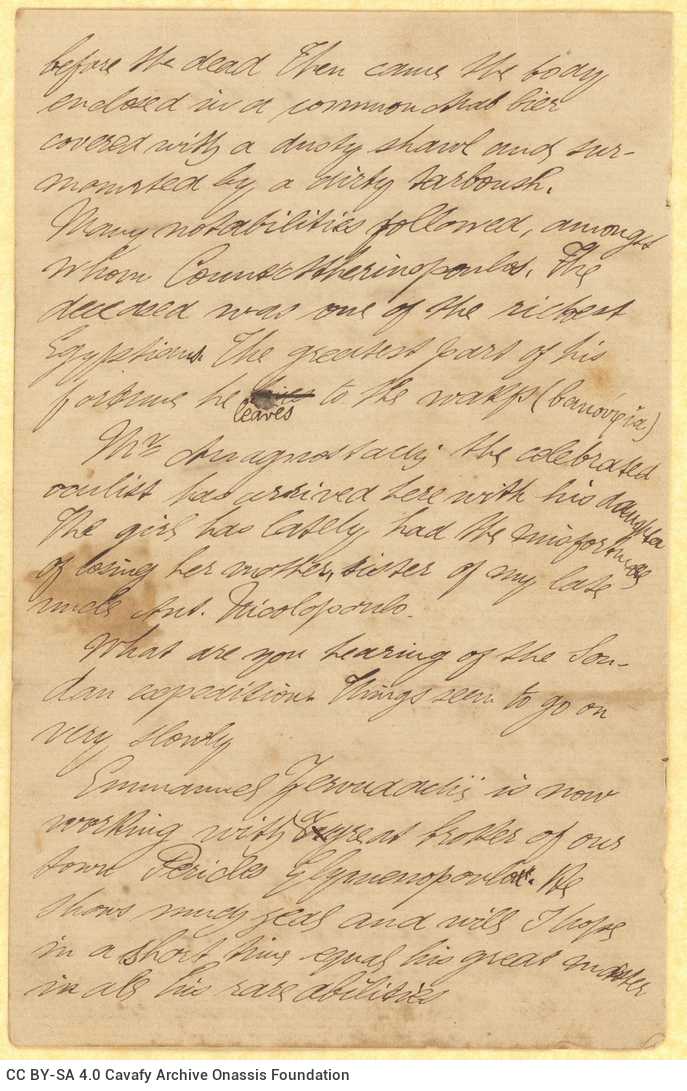 before the dead Then came the body
enclosed in a common bier
covered with a dusty shawl and sur-
mounted by a dirty tarboush.
Many notabilities followed, amongst
whom Count The
deceased was one of the richest
Egyptians. The greatest part of his
fortune he leaves to the wakf
Mr. Anagnostachi the celebrated
oculist has arrived here with his daughter
The girl has lately had the misfortune
of losing her mother, sister of my late
uncle Ant. Nicolopoulo.
What are you hearing of the Sou-
dan expedition. Things seem to go on
very slowly
Emmanuel is now
working with great broker of our
town Pericles He
shows much zeal and will I hope
in a short time equal his great master
in all his rare abilities
CC BY-SA 4.0 Cavafy Archive Onassis Foundation